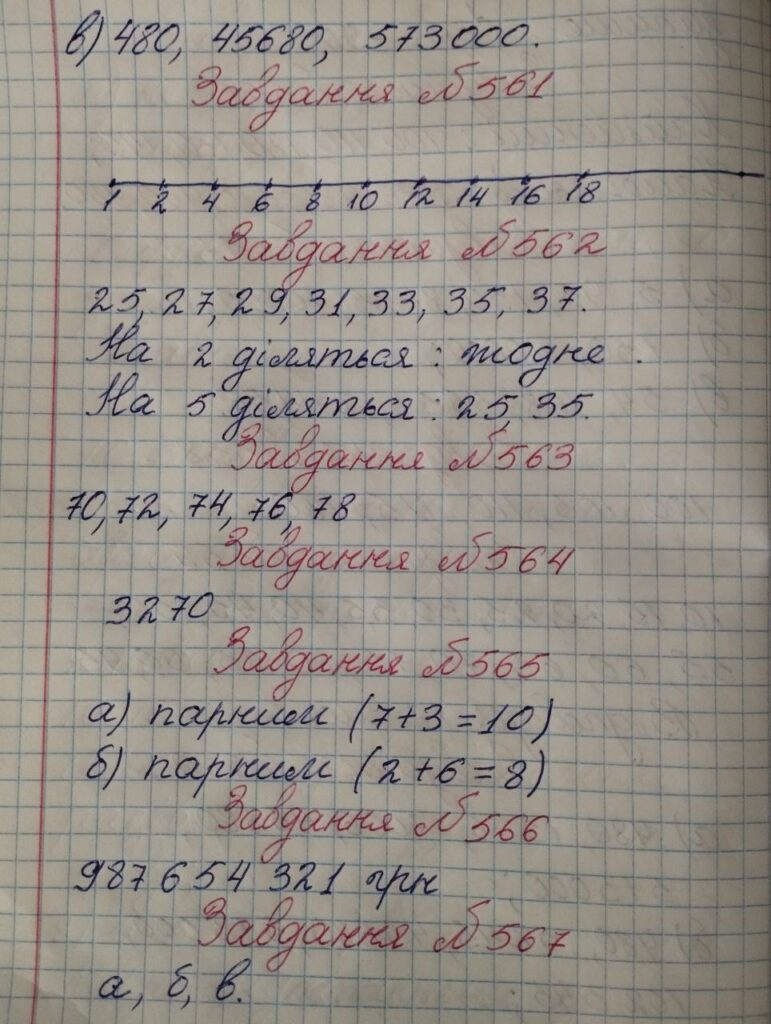 в) 480, 45680, 573000.
Завдання №561
1 2 4 6 8 10 12 14 16 18
Завдання №562
25, 27, 29, 31, 33, 35, 37.
На 2 діляться: жодне.
На 5 діляться: 25, 35.
Завдання №563
70, 72, 74, 76, 78
Завдання №564
3270
Завдання №565
а) парним (7+3=10)
б) парним (2+6=8)
Завдання №566
987 654 321 грн
Завдання №567
а, б, в.